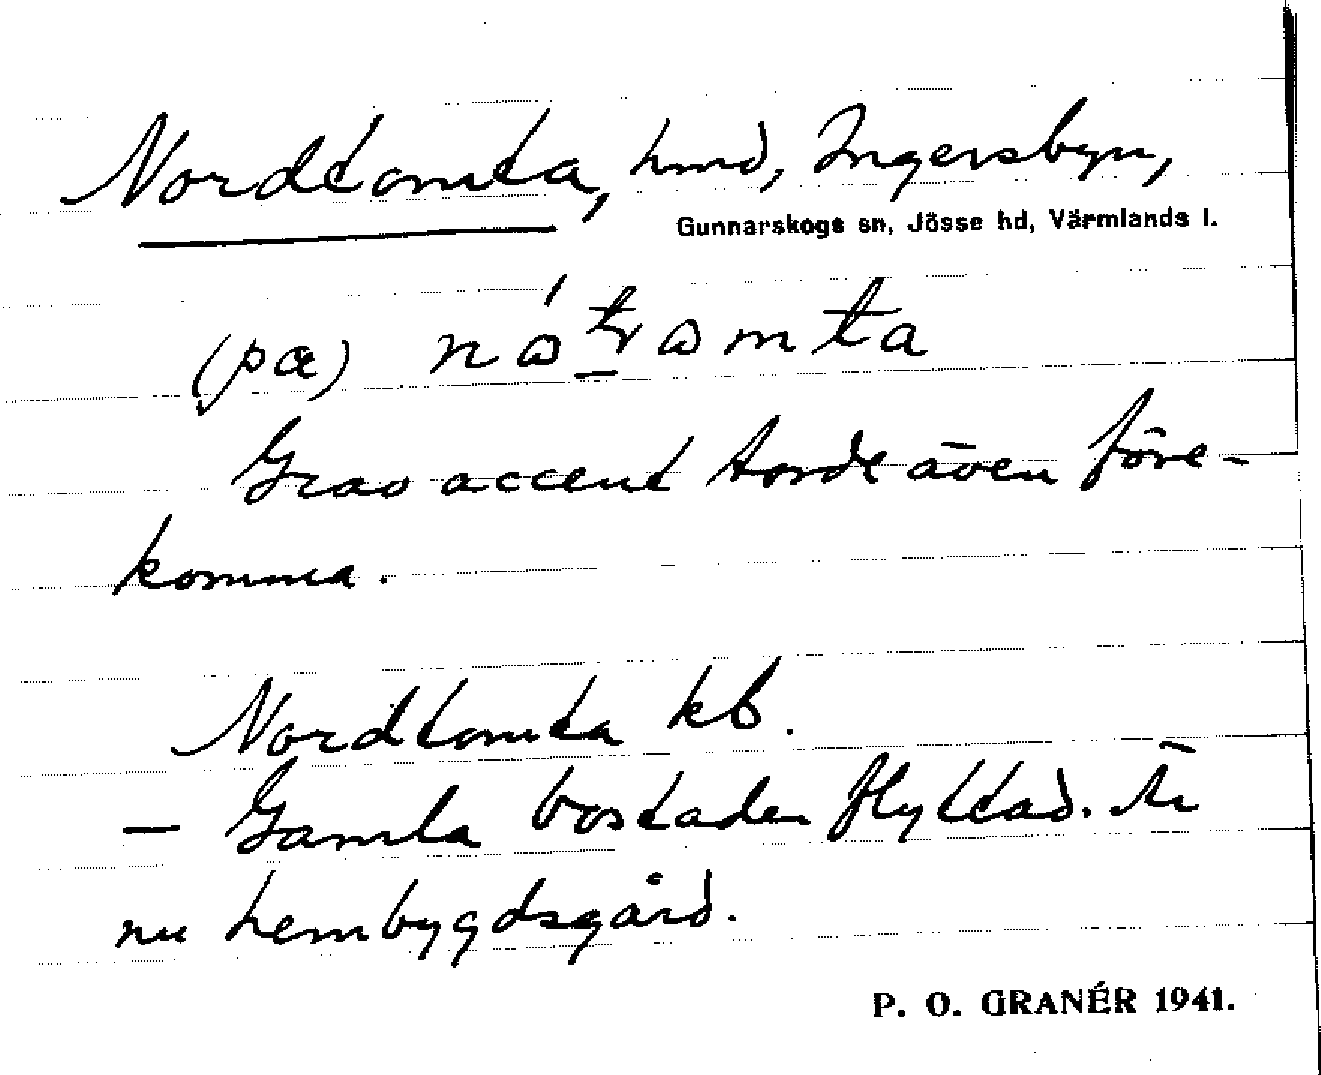 Nordtomta, hmd, Ingersbyn,
Gunnarskogs sn, Jösse hd, Värmlands l.
(pæ)
Grav accent torde även före-
komma.
Nordtomta kb.
— Gamla bostaden flyttad. Är
nu hembygdsgård.
P. O. GRANÉR 1941.